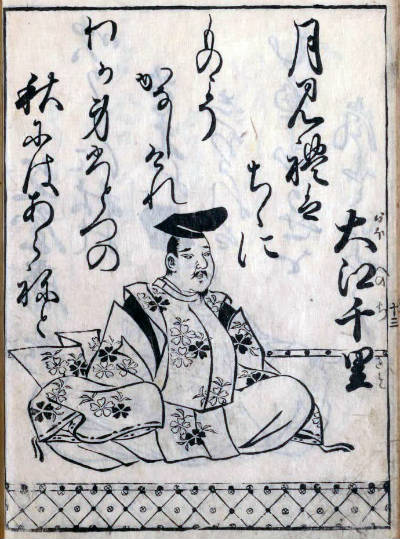 十二
大江千里
おほへのちさと
月見礼は
ちゝに
ものこそ
かなしけれ
わか身ひとつの
秋にはあらねと